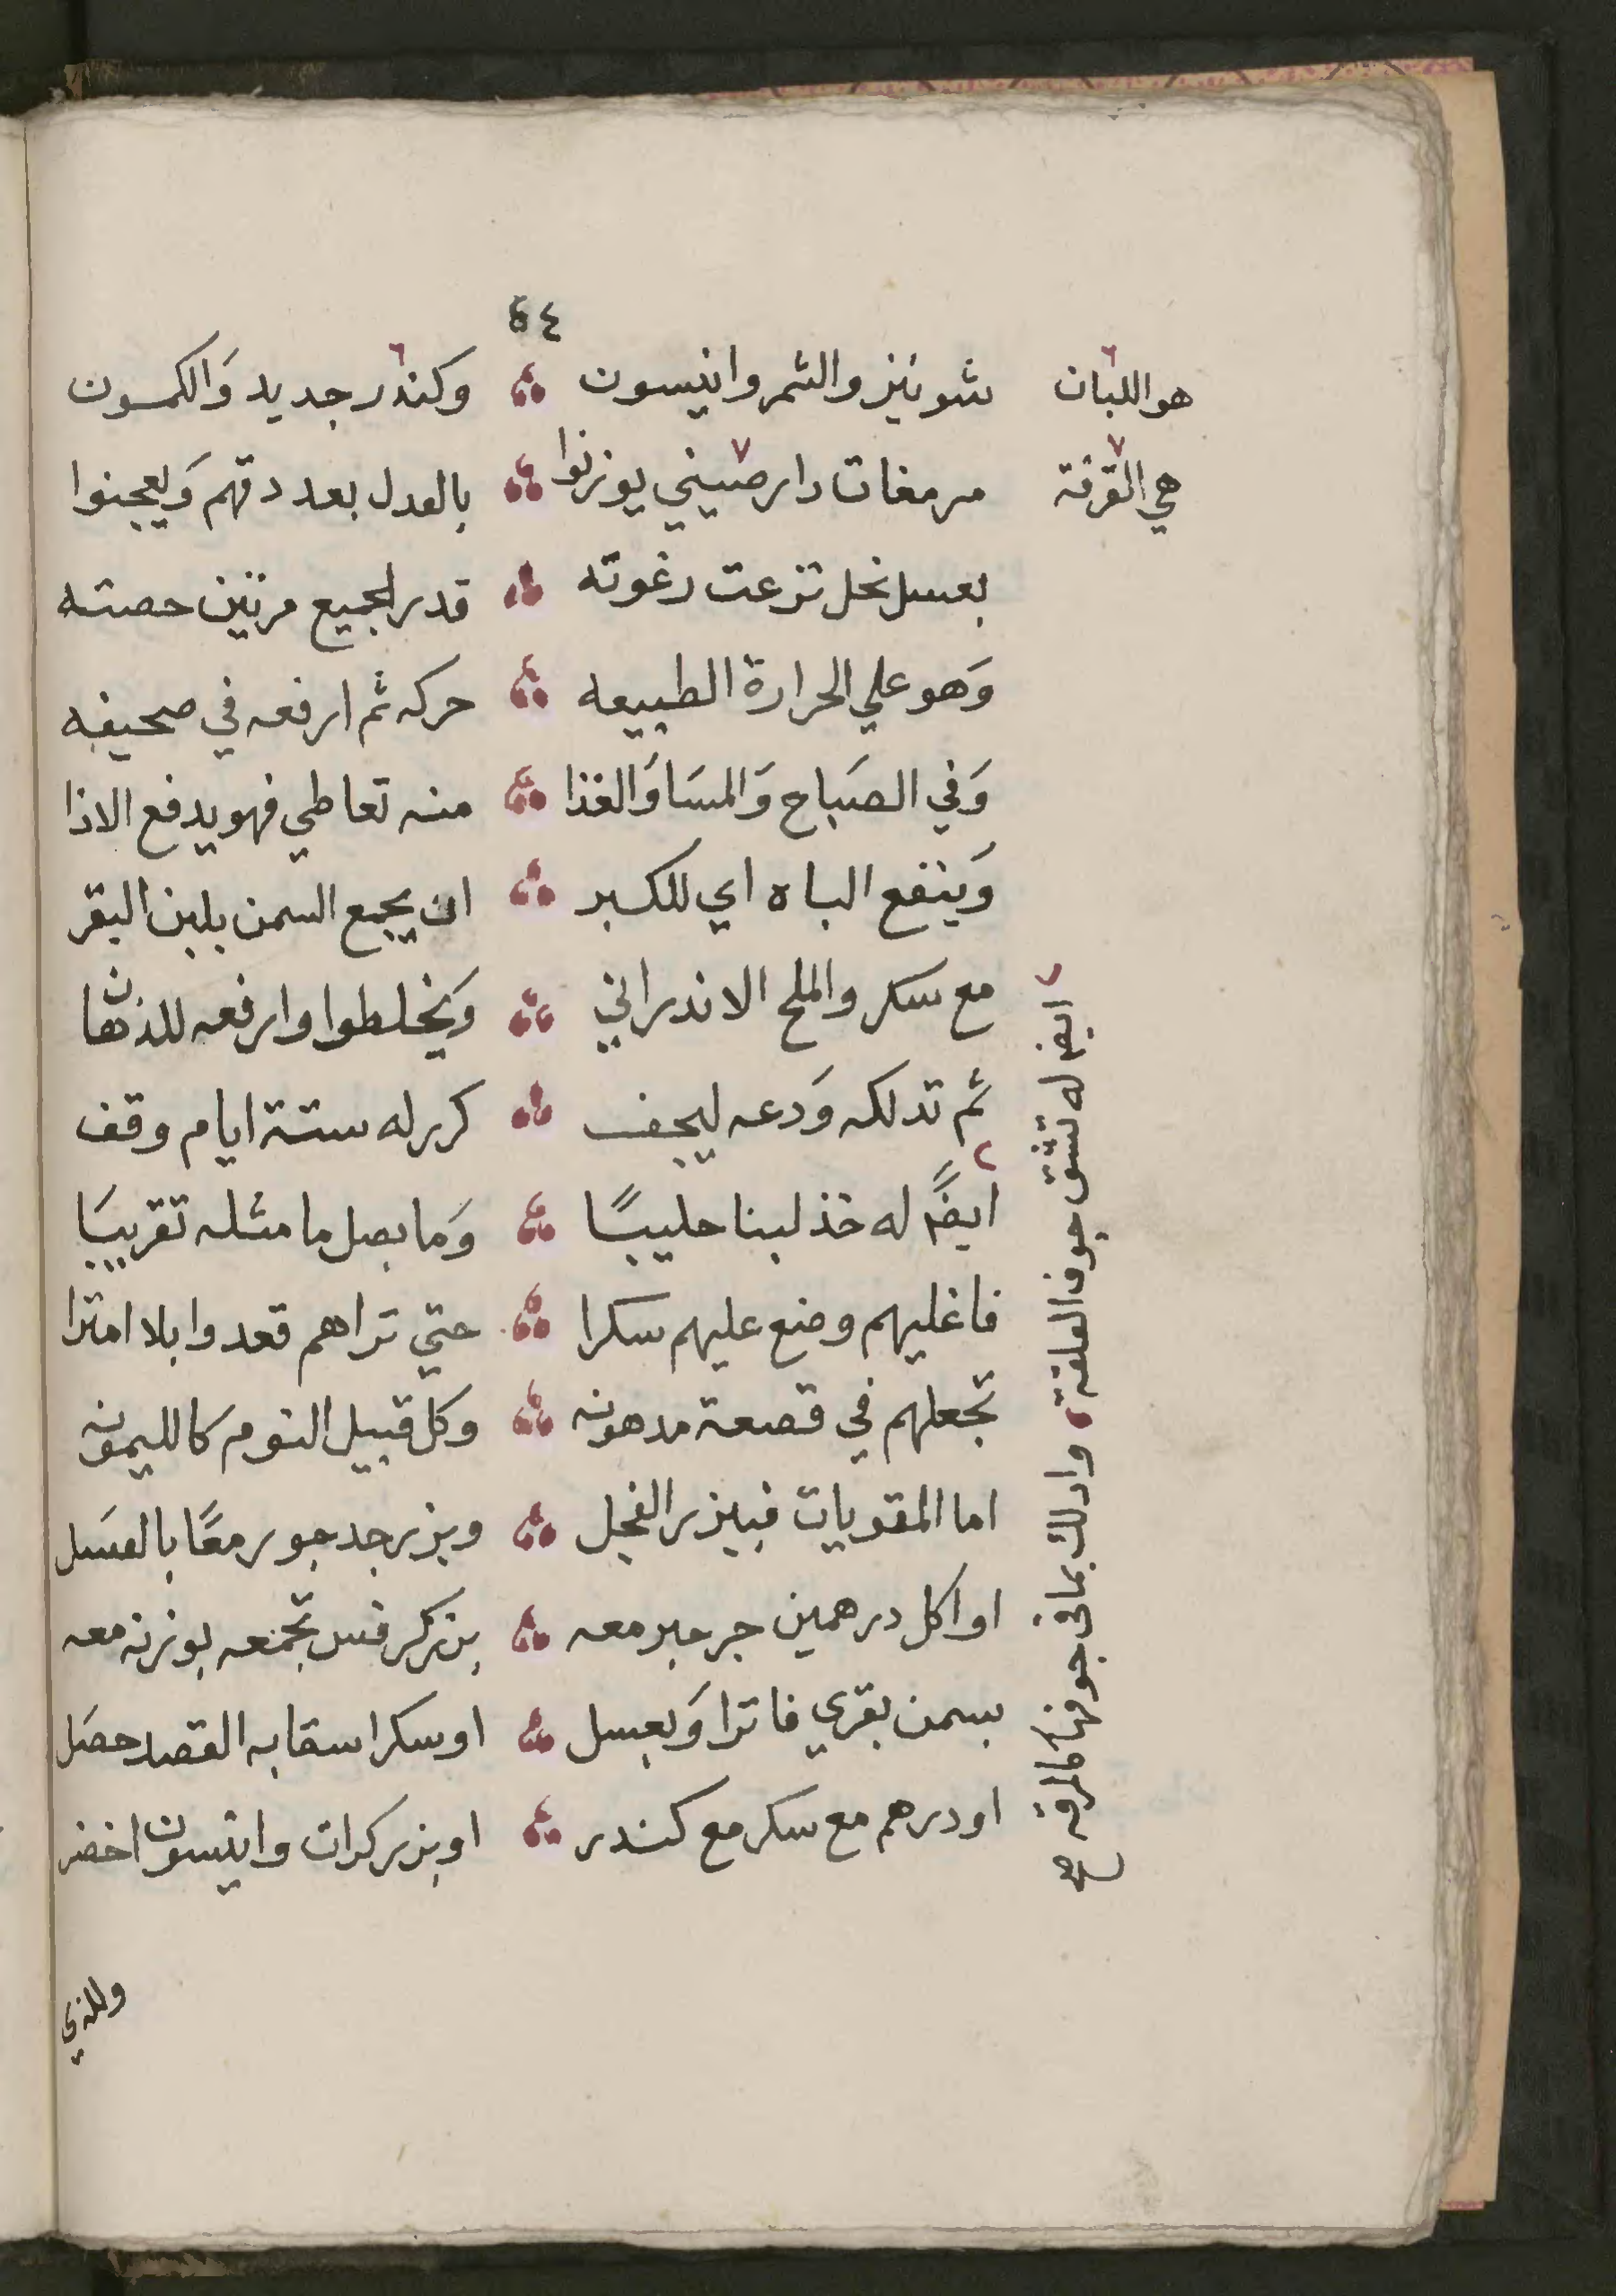 ٥٤
شونيز والشمر وانيسون وكندر جديد وَالكمون
هو اللبان
مرمغات دارصيني يوزنوا بالعدل بعد دقهم وَيعجنوا
هي القرفة
بعسل نحل نزعت رغوته قدر الجميع مرتين حصته
وَهو علي الحرارة الطبيعه حركه ثم ارفعه في صحيفه
وَفي الصَباح وَالمسَا وَالغذا منه تعاطي فهو يدفع الاذا
وَينفع الباه اي للكبر ان يجمع السمن بلبن البقر
مع سكر والملح الاندراني وَيخلطوا وارفعه
ثم تدلكه وَدعه ليجف كرر له ستة ايام وقف
ايضًا له خذ لبنا حليبًا وَما بصل ما مثله تقريبَا
فاغليهم وضع عليهم سكرا حتي تراهم قعدوا بلا امترا
تجعلهم في قصعة مدهونه وكل قبيل النوم كالليمونه
اما المقويات فبزر الفجل وبزر جرجور معًا بالعسَل
او اكل درهمين جرجير معه بزر كرفس تجمعه بوزنه معه
بسمن بقري فاترا وَبعسل او سكرا سقا به القصد حصَل
او درهم مع سكر مع كندر او بزر كرات وانيسون اخضر
ايضا له تشق جوف العلقة وادلك بما في جوفها كالمرقه صح
وللذي